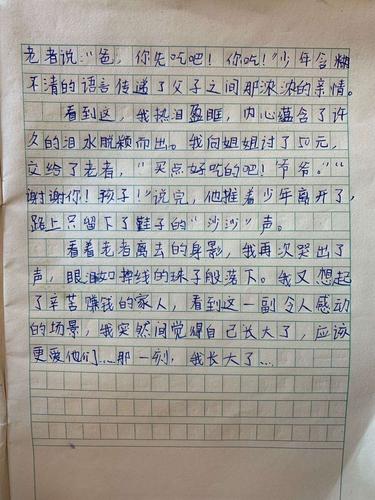 老者说："爸，你先吃吧！你吃！"少年含糊
不清的语言传递了父子之间那浓浓的亲情。
看到这，我热泪盈眶，内心蕴含了许
久的泪水脱颖而出。我向姐姐讨了50元，
交给了老者，"买点好吃的吧！爷爷。""
谢谢你！孩子！"说完，他推着少年离开了，
路上只留下了鞋子的"沙沙"声。
看着老者离去的身影，我再次哭出了
声，眼泪如掉线的珠子般落下。我又想起
了辛苦赚钱的家人，看到这一副令人感动
的场景，我突然间觉得自己长大了，应该
更爱他们……那一刻，我长大了…